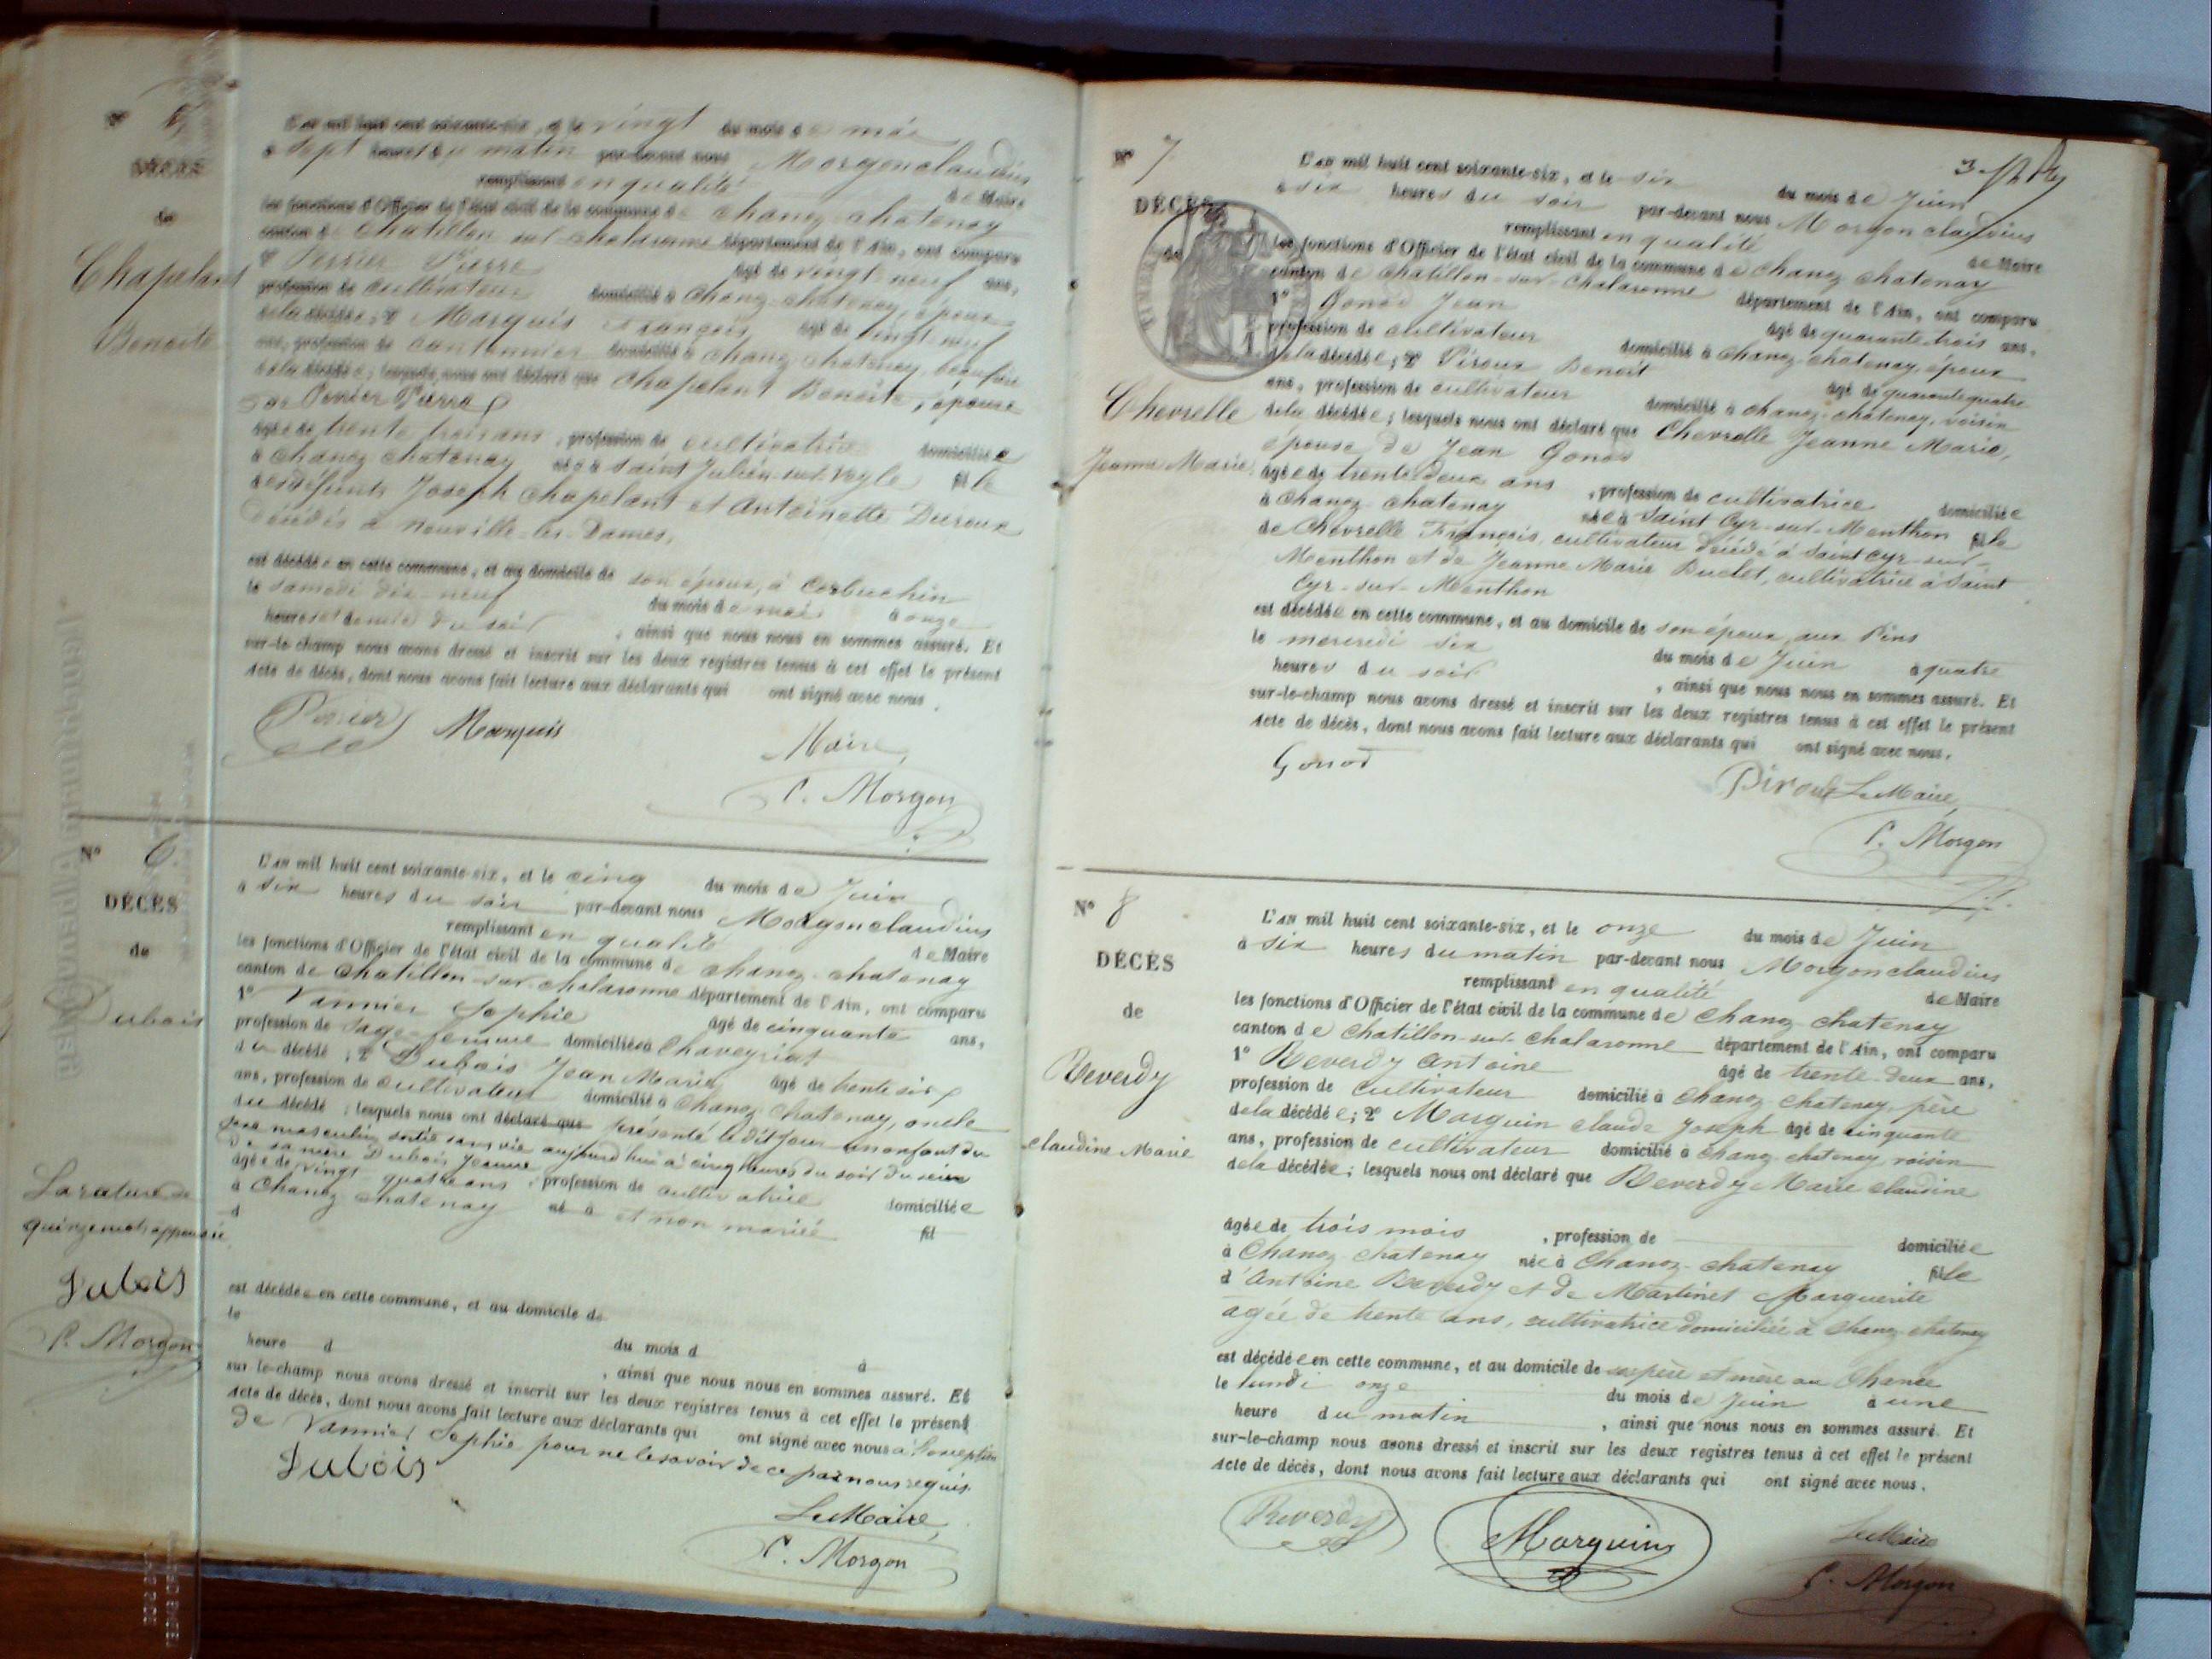 N° 5
DÉCÈS
de
Chapelant
Benoîte
L'an mil huit cent soixante-six, et le vingt du mois de mai
à sept heures du matin par-devant nous Morgon claudius
remplissant en qualité de Maire
les fonctions d'Officier de l'état civil de la commune de Chanoz-chatenay
canton de Chatillon-sur-chalaronne département de l'Ain, ont comparu
1° Perrier Pierre âgé de vingt-neuf ans,
profession de cultivateur domicilié à Chanoz-chatenay, époux
de la décédée; 2° Marquis François âgé de vingt neuf
ans, profession de cantonnier domicilié à Chanoz chatenay, beau frère
de la décédée; lesquels nous ont déclaré que Chapelant Benoîte, épouse
Perrier Pierre
âgée de trente trois ans, profession de cultivatrice domiciliée
à Chanoz chatenay née à Saint Julien-sur-Veyle fille
des défunts Joseph Chapelant et Antoinette Duroux
décédés à Neuville-les-Dames,
est décédée en cette commune, et au domicile de son époux, à Corbuchin
le samedi dix-neuf du mois de mai à onze
heures et demie du soir, ainsi que nous nous en sommes assuré. Et
sur-le-champ nous avons dressé et inscrit sur les deux registres tenus à cet effet le présent
Acte de décès, dont nous avons fait lecture aux déclarants qui ont signé avec nous.
Perrier Marquis
Maire,
C. Morgon
N° 6
DÉCÈS
de
Dubois
La rature de
quinze mots approuvée
Dubois
C. Morgon
L'AN mil huit cent soixante-six, et le cinq du mois de Juin
à six heures du soir par-devant nous Morgon claudius
remplissant en qualité de Maire
les fonctions d'Officier de l'état civil de la commune de chanoz-chatenay
canton de Chatillon-sur-chalaronne département de l'Ain, ont comparu
1° Vannier Sophie âgé de cinquante ans,
profession de Sage-femme domiciliée à Chaveyriat
du décédé; 2° Dubois Jean Marie âgé de trente six
ans, profession de cultivateur domicilié à Chanoz chatenay, oncle
du décédé; lesquels nous ont déclaré que présenté le dit jour un enfant du
sexe masculin sorti sans vie aujourd'hui à cinq heures du soir du sein
de sa mère Dubois Jeanne
âgée de vingt quatre ans, profession de cultivatrice domiciliée
à Chanoz chatenay né à et non mariée fil
d
est décédée en cette commune, et au domicile de
le du mois d à
heure d, ainsi que nous nous en sommes assuré. Et
sur le-champ nous avons dressé et inscrit sur les deux registres tenus à cet effet le présent
Acte de décès, dont nous avons fait lecture aux déclarants qui ont signé avec nous à l'exception
de Vannier Sophie pour ne le savoir de ce par nous requis.
Dubois
Le Maire,
C. Morgon
N° 7
DÉCÈS
de
Chevrelle
Jeanne Marie
L'AN mil huit cent soixante-six, et le six du mois de Juin
à six heures du soir par-devant nous Morgon claudius
remplissant en qualité de Maire
les fonctions d'Officier de l'état civil de la commune de Chanoz chatenay
canton de Chatillon-sur-Chalaronne département de l'Ain, ont comparu
1° Gonod Jean âgé de quarante trois ans,
profession de cultivateur domicilié à Chanoz-chatenay, époux
de la décédée; 2° Piroux Benoit âgé de quarante quatre
ans, profession de cultivateur domicilié à chanoz-chatenay, voisin
de la décédée; lesquels nous ont déclaré que Chevrelle Jeanne Marie,
épouse de Jean Gonod
âgée de trente deux ans, profession de cultivatrice domiciliée
à Chanoz chatenay née à Saint Cyr-sur-Menthon fille
de Chevrelle François, cultivateur décédé à Saint cyr-sur-
Menthon et de Jeanne Marie Buclet, cultivatrice à Saint
Cyr-sur-Menthon
est décédée en cette commune, et au domicile de son époux, aux Pins
le mercredi six du mois de Juin à quatre
heures du soir, ainsi que nous nous en sommes assuré. Et
sur-le-champ nous avons dressé et inscrit sur les deux registres tenus à cet effet le présent
Acte de décès, dont nous avons fait lecture aux déclarants qui ont signé avec nous.
Gonod
Piroux Le Maire,
C. Morgon
N° 8
DÉCÈS
de
Reverdy
Claudine Marie
L'AN mil huit cent soixante-six, et le onze du mois de Juin
à six heures du matin par-devant nous Morgon claudius
remplissant en qualité de Maire
les fonctions d'Officier de l'état civil de la commune de Chanoz-chatenay
canton de Chatillon-sur-Chalaronne département de l'Ain, ont comparu
1° Reverdy Antoine âgé de trente-deux ans,
profession de Cultivateur domicilié à Chanoz-chatenay, père
de la décédée; 2° Marguin claude Joseph âgé de cinquante
ans, profession de cultivateur domicilié à Chanoz chatenay voisin
de la décédée; lesquels nous ont déclaré que Reverdy Marie claudine
âgée de trois mois, profession de domiciliée
à Chanoz-chatenay née à Chanoz-chatenay fille
d'Antoine Reverdy et de Martinet Marguerite
agée de trente ans, cultivatrice domiciliée à Chanoz chatenay
est décédée en cette commune, et au domicile de ses père et mère au Chance
le lundi onze du mois de Juin à une
heure du matin, ainsi que nous nous en sommes assuré. Et
sur-le-champ nous avons dressé et inscrit sur les deux registres tenus à cet effet le présent
Acte de décès, dont nous avons fait lecture aux déclarants qui ont signé avec nous.
Reverdy Marguin
Le Maire
C. Morgon